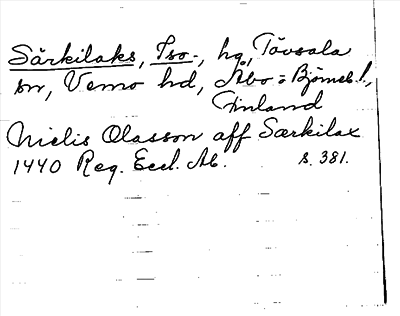 Särkilaks, Iso-, hg, Tövsala
sn, Vemo hd, Åbo=Björneb. l.,
Finland
Nielis Olasson aff Særkilax
1440 Reg. Eccl. Ab. s. 381.